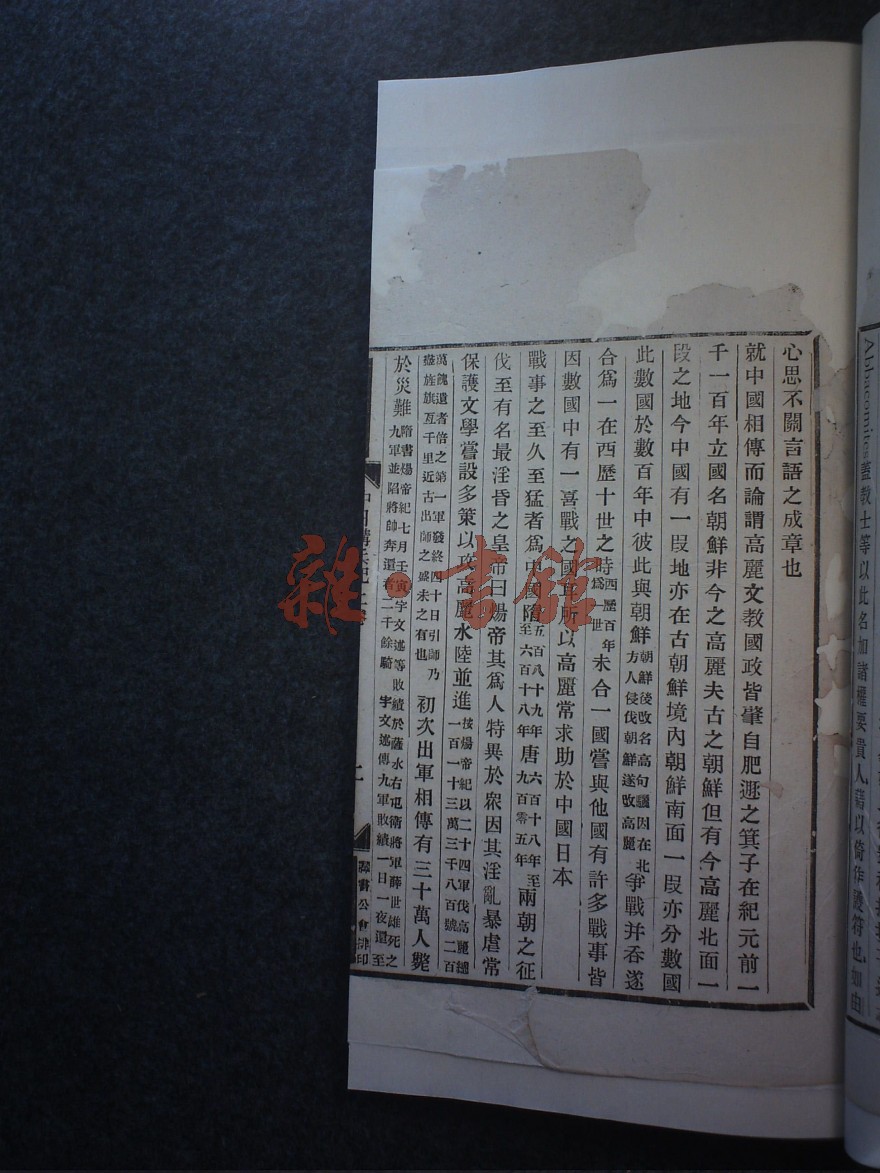 Abbacomites蓋教士等以此名加諸權要貴人藉以倚作護符也如由
心思不關言語之成章也
就中國相傳而論謂高麗文教國政皆肇自肥遯之箕子在紀元前一
千一百年立國名朝鮮非今之高麗夫古之朝鮮但有今高麗北面一
段之地今中國有一段地亦在古朝鮮境內朝鮮南面一段亦分數國
此數國於數百年中彼此與朝鮮朝鮮後改名高句驪因在北方人侵伐朝鮮遂改高麗爭戰并吞遂
合爲一在西歷十世之時西歷百年爲一世未合一國嘗與他國有許多戰事皆
因數國中有一喜戰之國耳所以高麗常求助於中國日本
戰事之至久至猛者爲中國隋五百八十九年至六百十八年唐六百十八年至九百零五年兩朝之征
伐至有名最淫昏之皇帝曰煬帝其爲人特異於衆因其淫亂暴虐常
保護文學嘗設多策以攻高麗水陸並進按煬帝紀以二十四軍伐高麗總一百一十三萬三千八百號二百
萬餽遺者倍之第一軍發終四十日引師乃盡旌旗亙千里近古出師之盛未之有也初次出軍相傳有三十萬人斃
於災難隋書煬帝紀七月壬寅宇文述等敗績於薩水右屯衛將軍薛世雄死之九軍並陷將帥奔還者二千餘騎 宇文述傳九軍敗績一日一夜還至
譯書公會排印
雜·書館